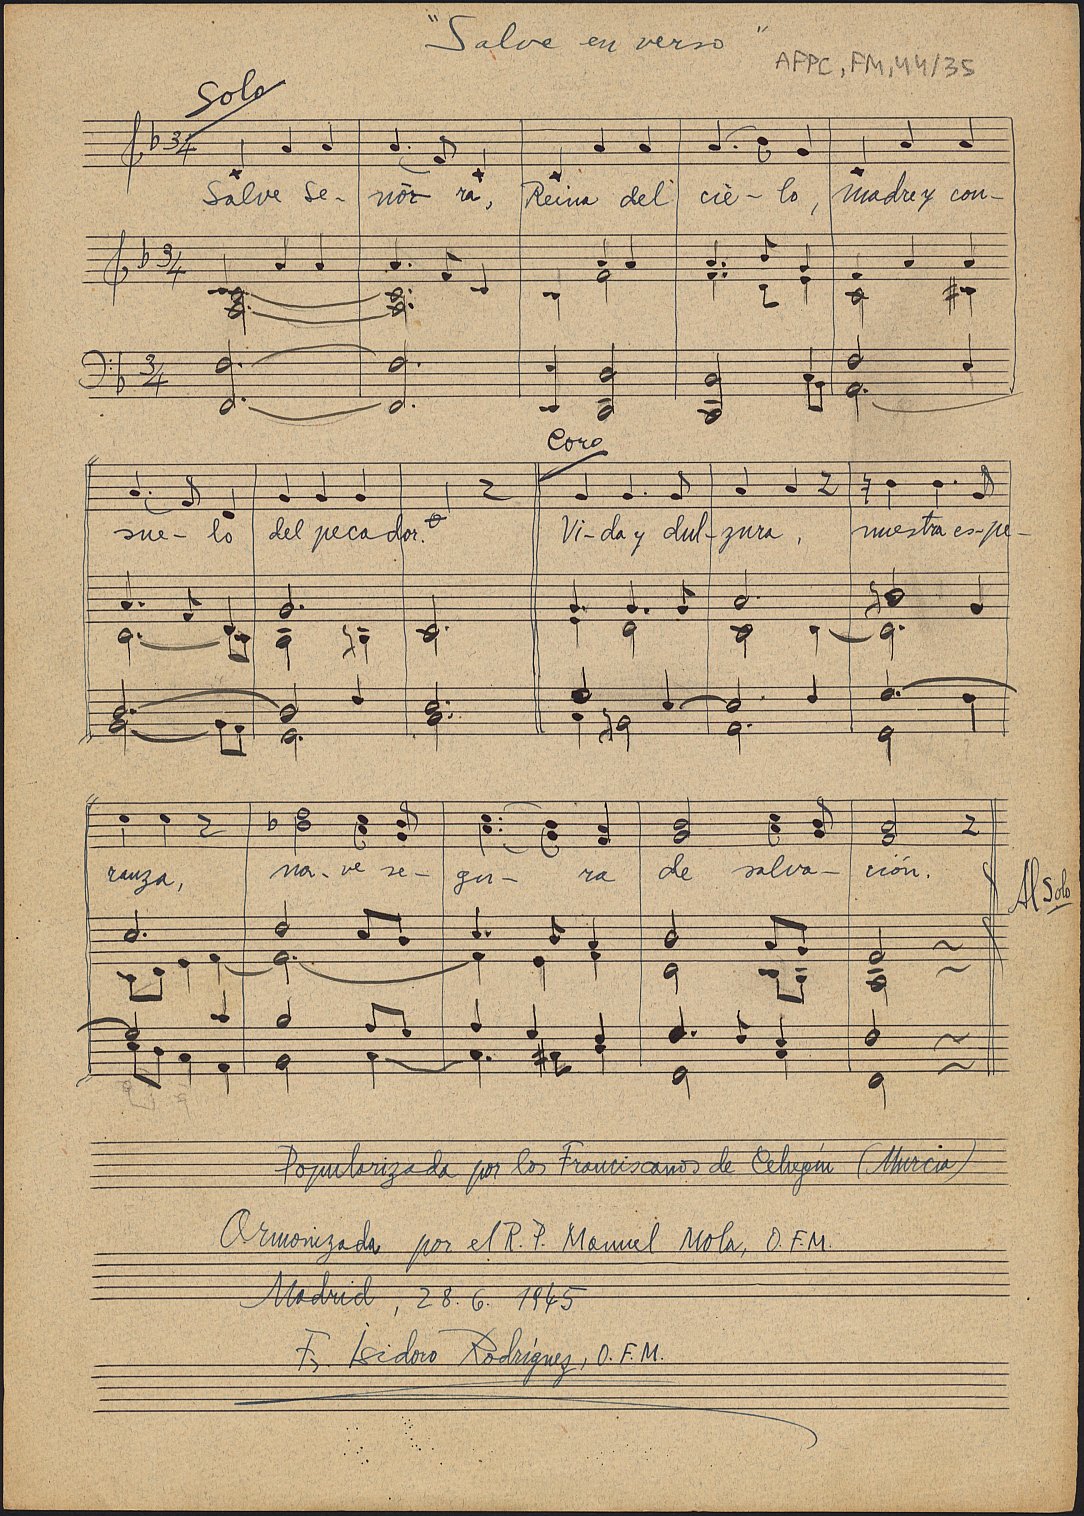 "Salve en verso"
AFPC, FM, 44/35
Solo
3/4
Salve Se- ño- ra, Reina del cie- lo, madre y con-
3/4
3/4
Coro
sue- lo del pecador. Vi-da y dul-zura, nuestra es-pe-
ranza, na-ve se- gu- ra de salva- ción.
Al Solo
Popularizada por los Franciscanos de Cehegín (Murcia)
Armonizada por el R. P. Manuel Mola, O.F.M.
Madrid, 28. 6. 1945
Fr. Isidoro Rodríguez, O.F.M.